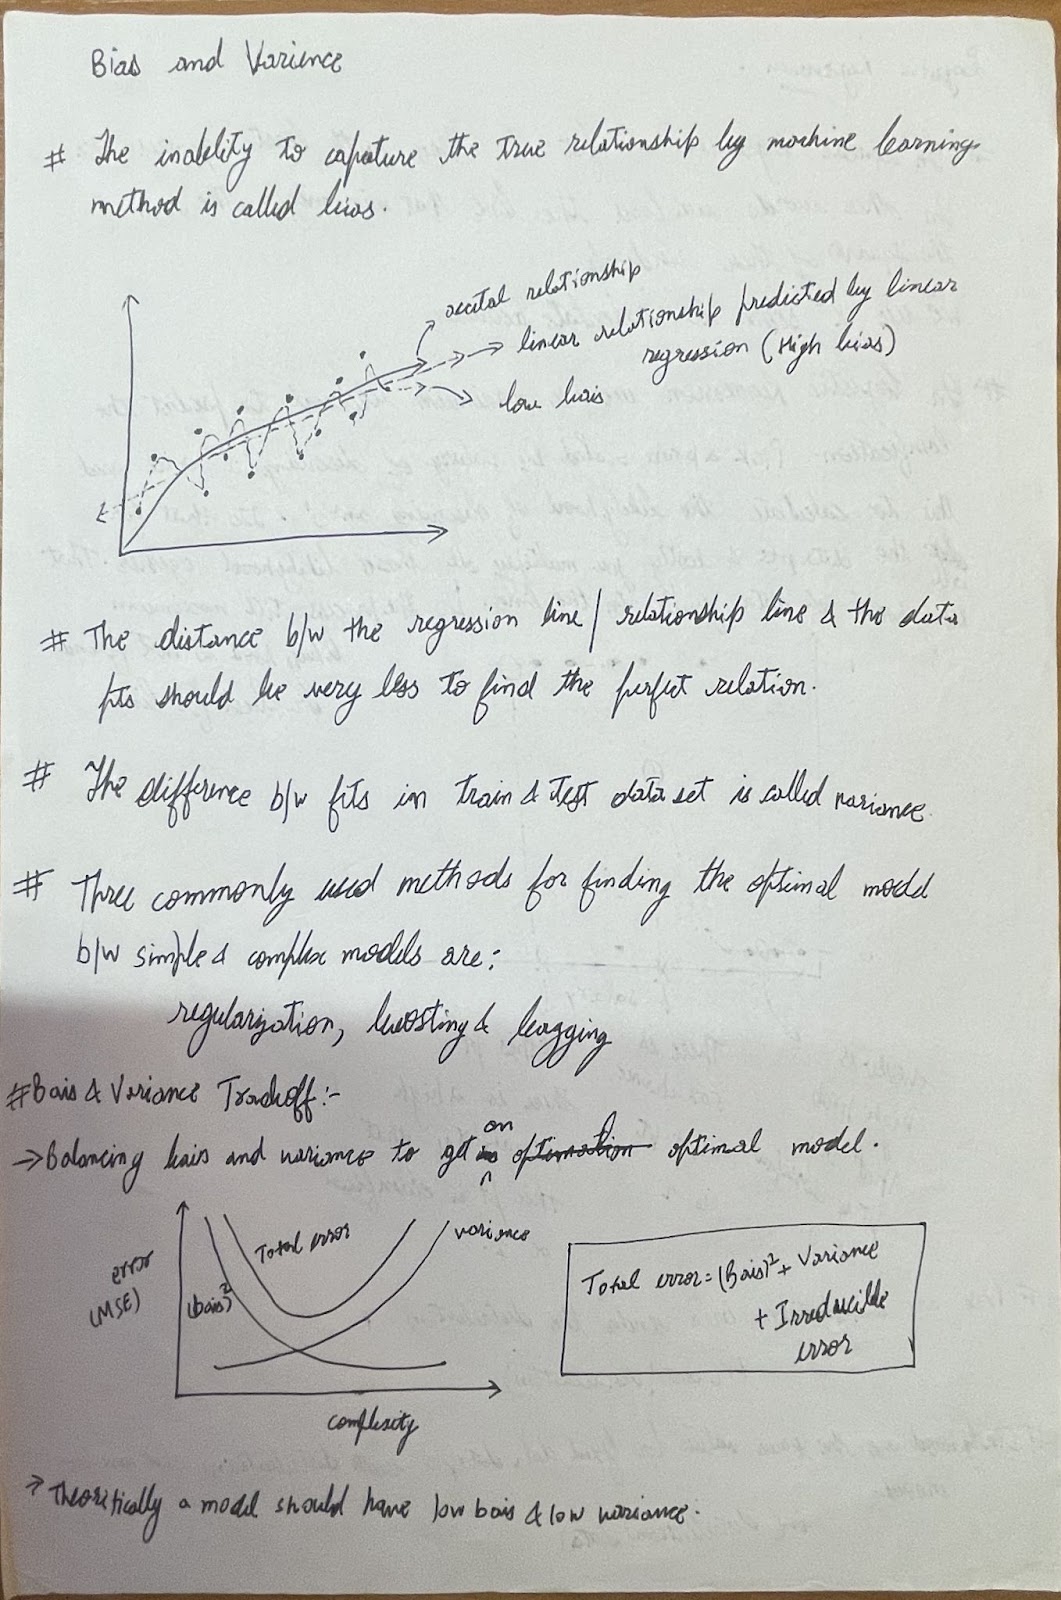 Bias and Varience
# The inability to capature the true relationship by machine learning
method is called bias.
acutal relationship
linear relationship predicted by linear
regression (High bias)
low bais
# The distance b/w the regression line / relationship line & the data
pts should be very less to find the perfect relation.
# The difference b/w fits in train & test data set is called variance
# Three commonly used methods for finding the optimal model
b/w simple & complex models are:
regularization, boosting & bagging
# Bais & Variance Tradeoff :-
an
→ Balancing bais and variance to get optimal model.
Total error
variance
error
(MSE)
(bais)²
complexity
Total error = (Bais)² + Variance
+ Irreducible
error
→ Theoritically a model should have low bais & low variance.